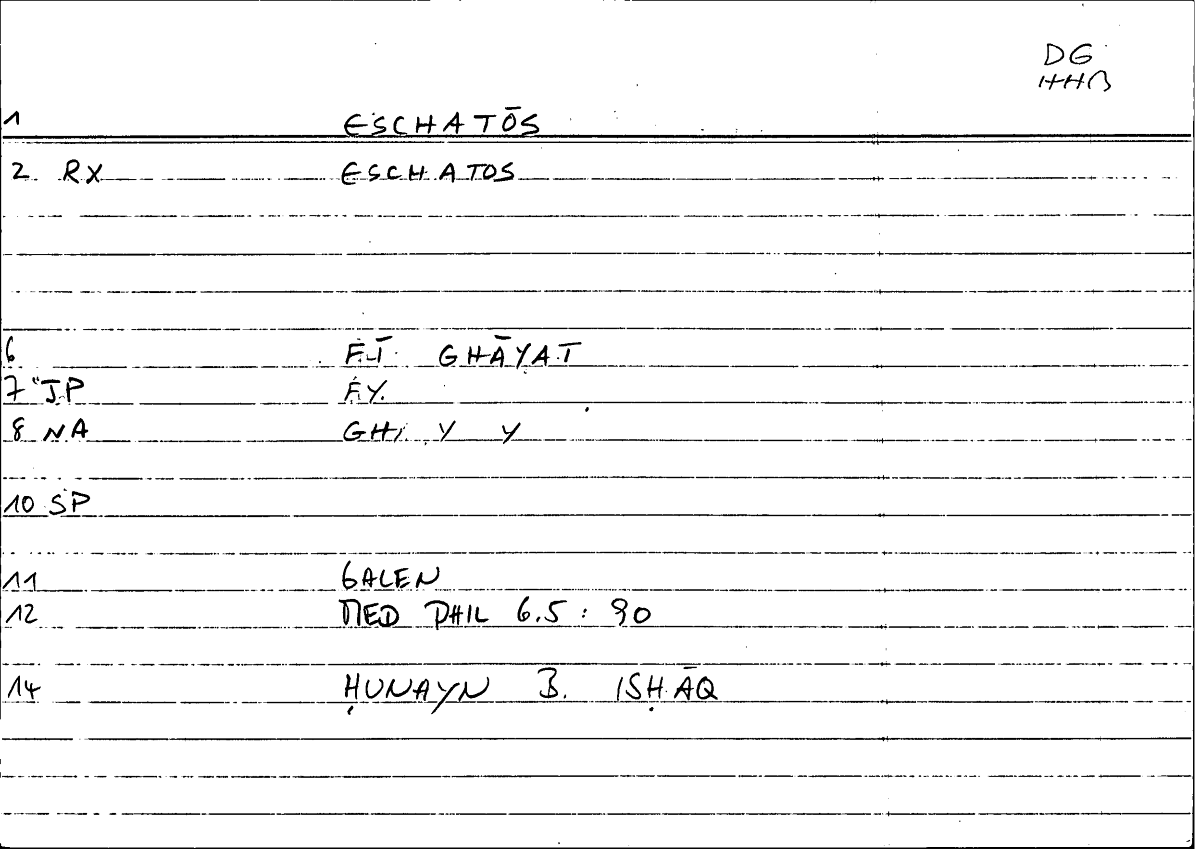 DG
HHB
1 ESCHATŌS
2 RX ESCHATOS
6 FĪ GHĀYAT
7 JP FY
8 NA GH Y Y
10 SP
11 GALEN
12 MED PHIL 6.5 : 90
14 ḤUNAYN B. ISḤĀQ